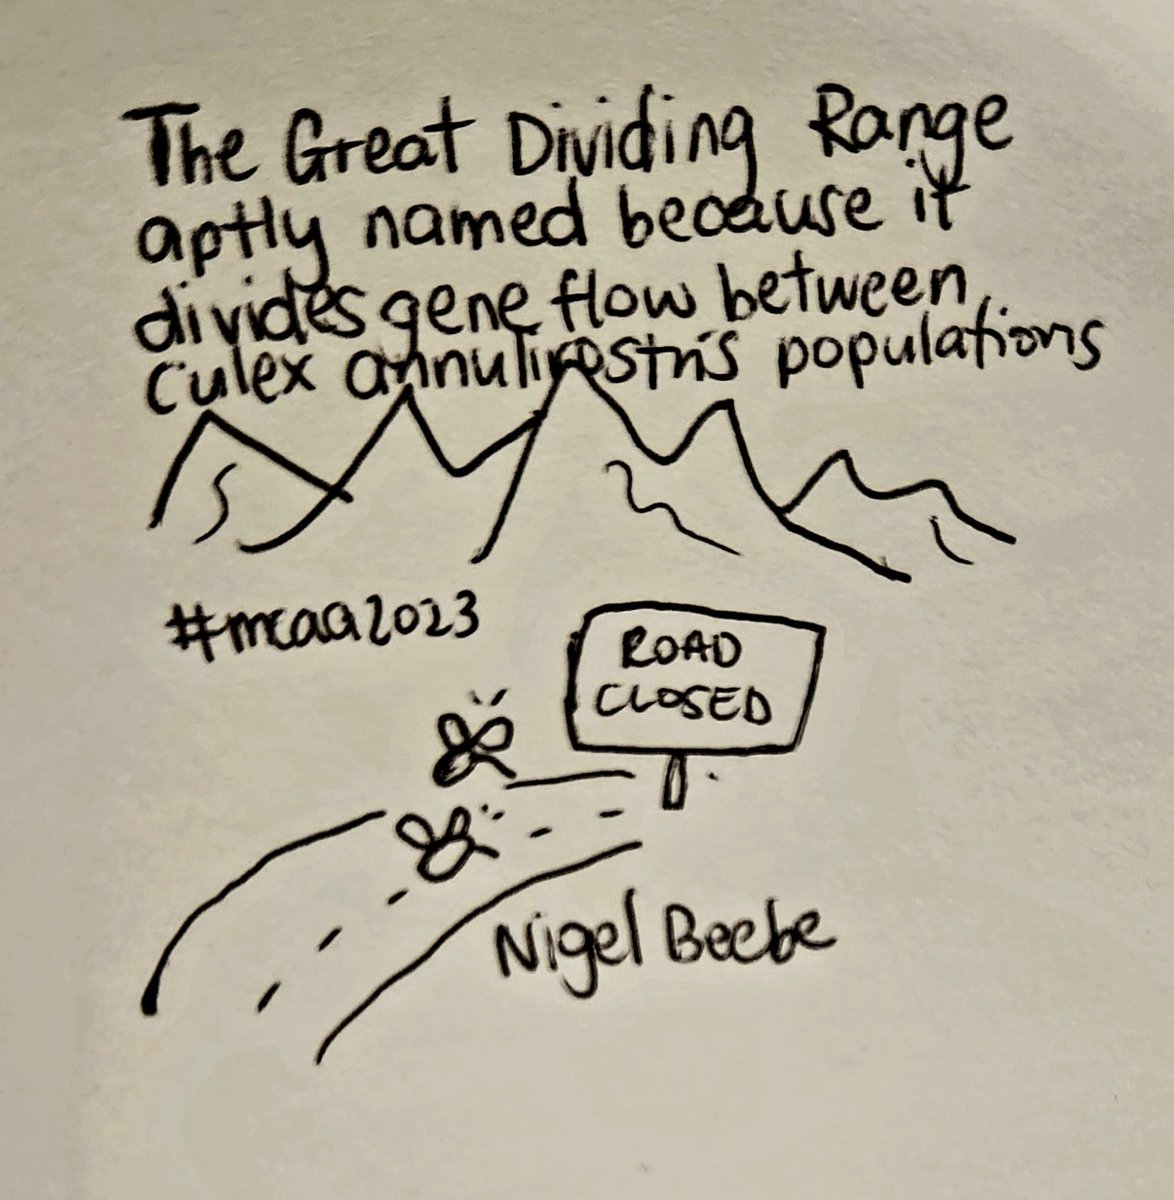 The Great Dividing Range
aptly named because it
divides gene flow between
Culex annulirostris populations
#mcaa2023
ROAD
CLOSED
Nigel Beebe